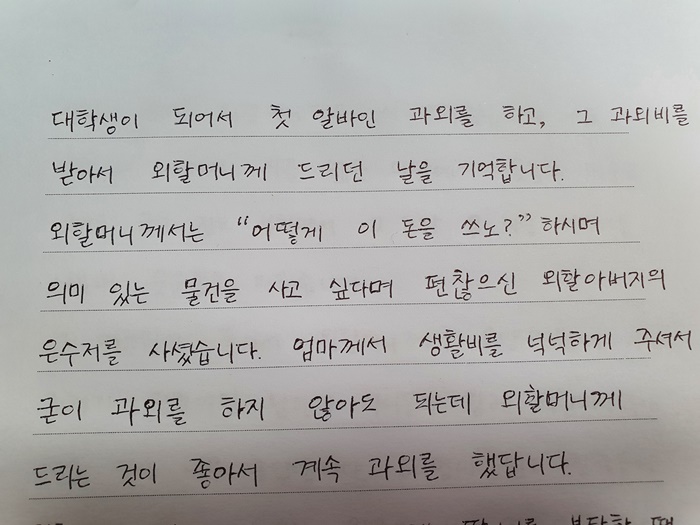 대학생이 되어서 첫 알바인 과외를 하고, 그 과외비를
받아서 외할머니께 드리던 날을 기억합니다.
외할머니께서는 “어떻게 이 돈을 쓰노?” 하시며
의미 있는 물건을 사고 싶다며 편찮으신 외할아버지의
은수저를 사셨습니다. 엄마께서 생활비를 넉넉하게 주셔서
굳이 과외를 하지 않아도 되는데 외할머니께
드리는 것이 좋아서 계속 과외를 했답니다.